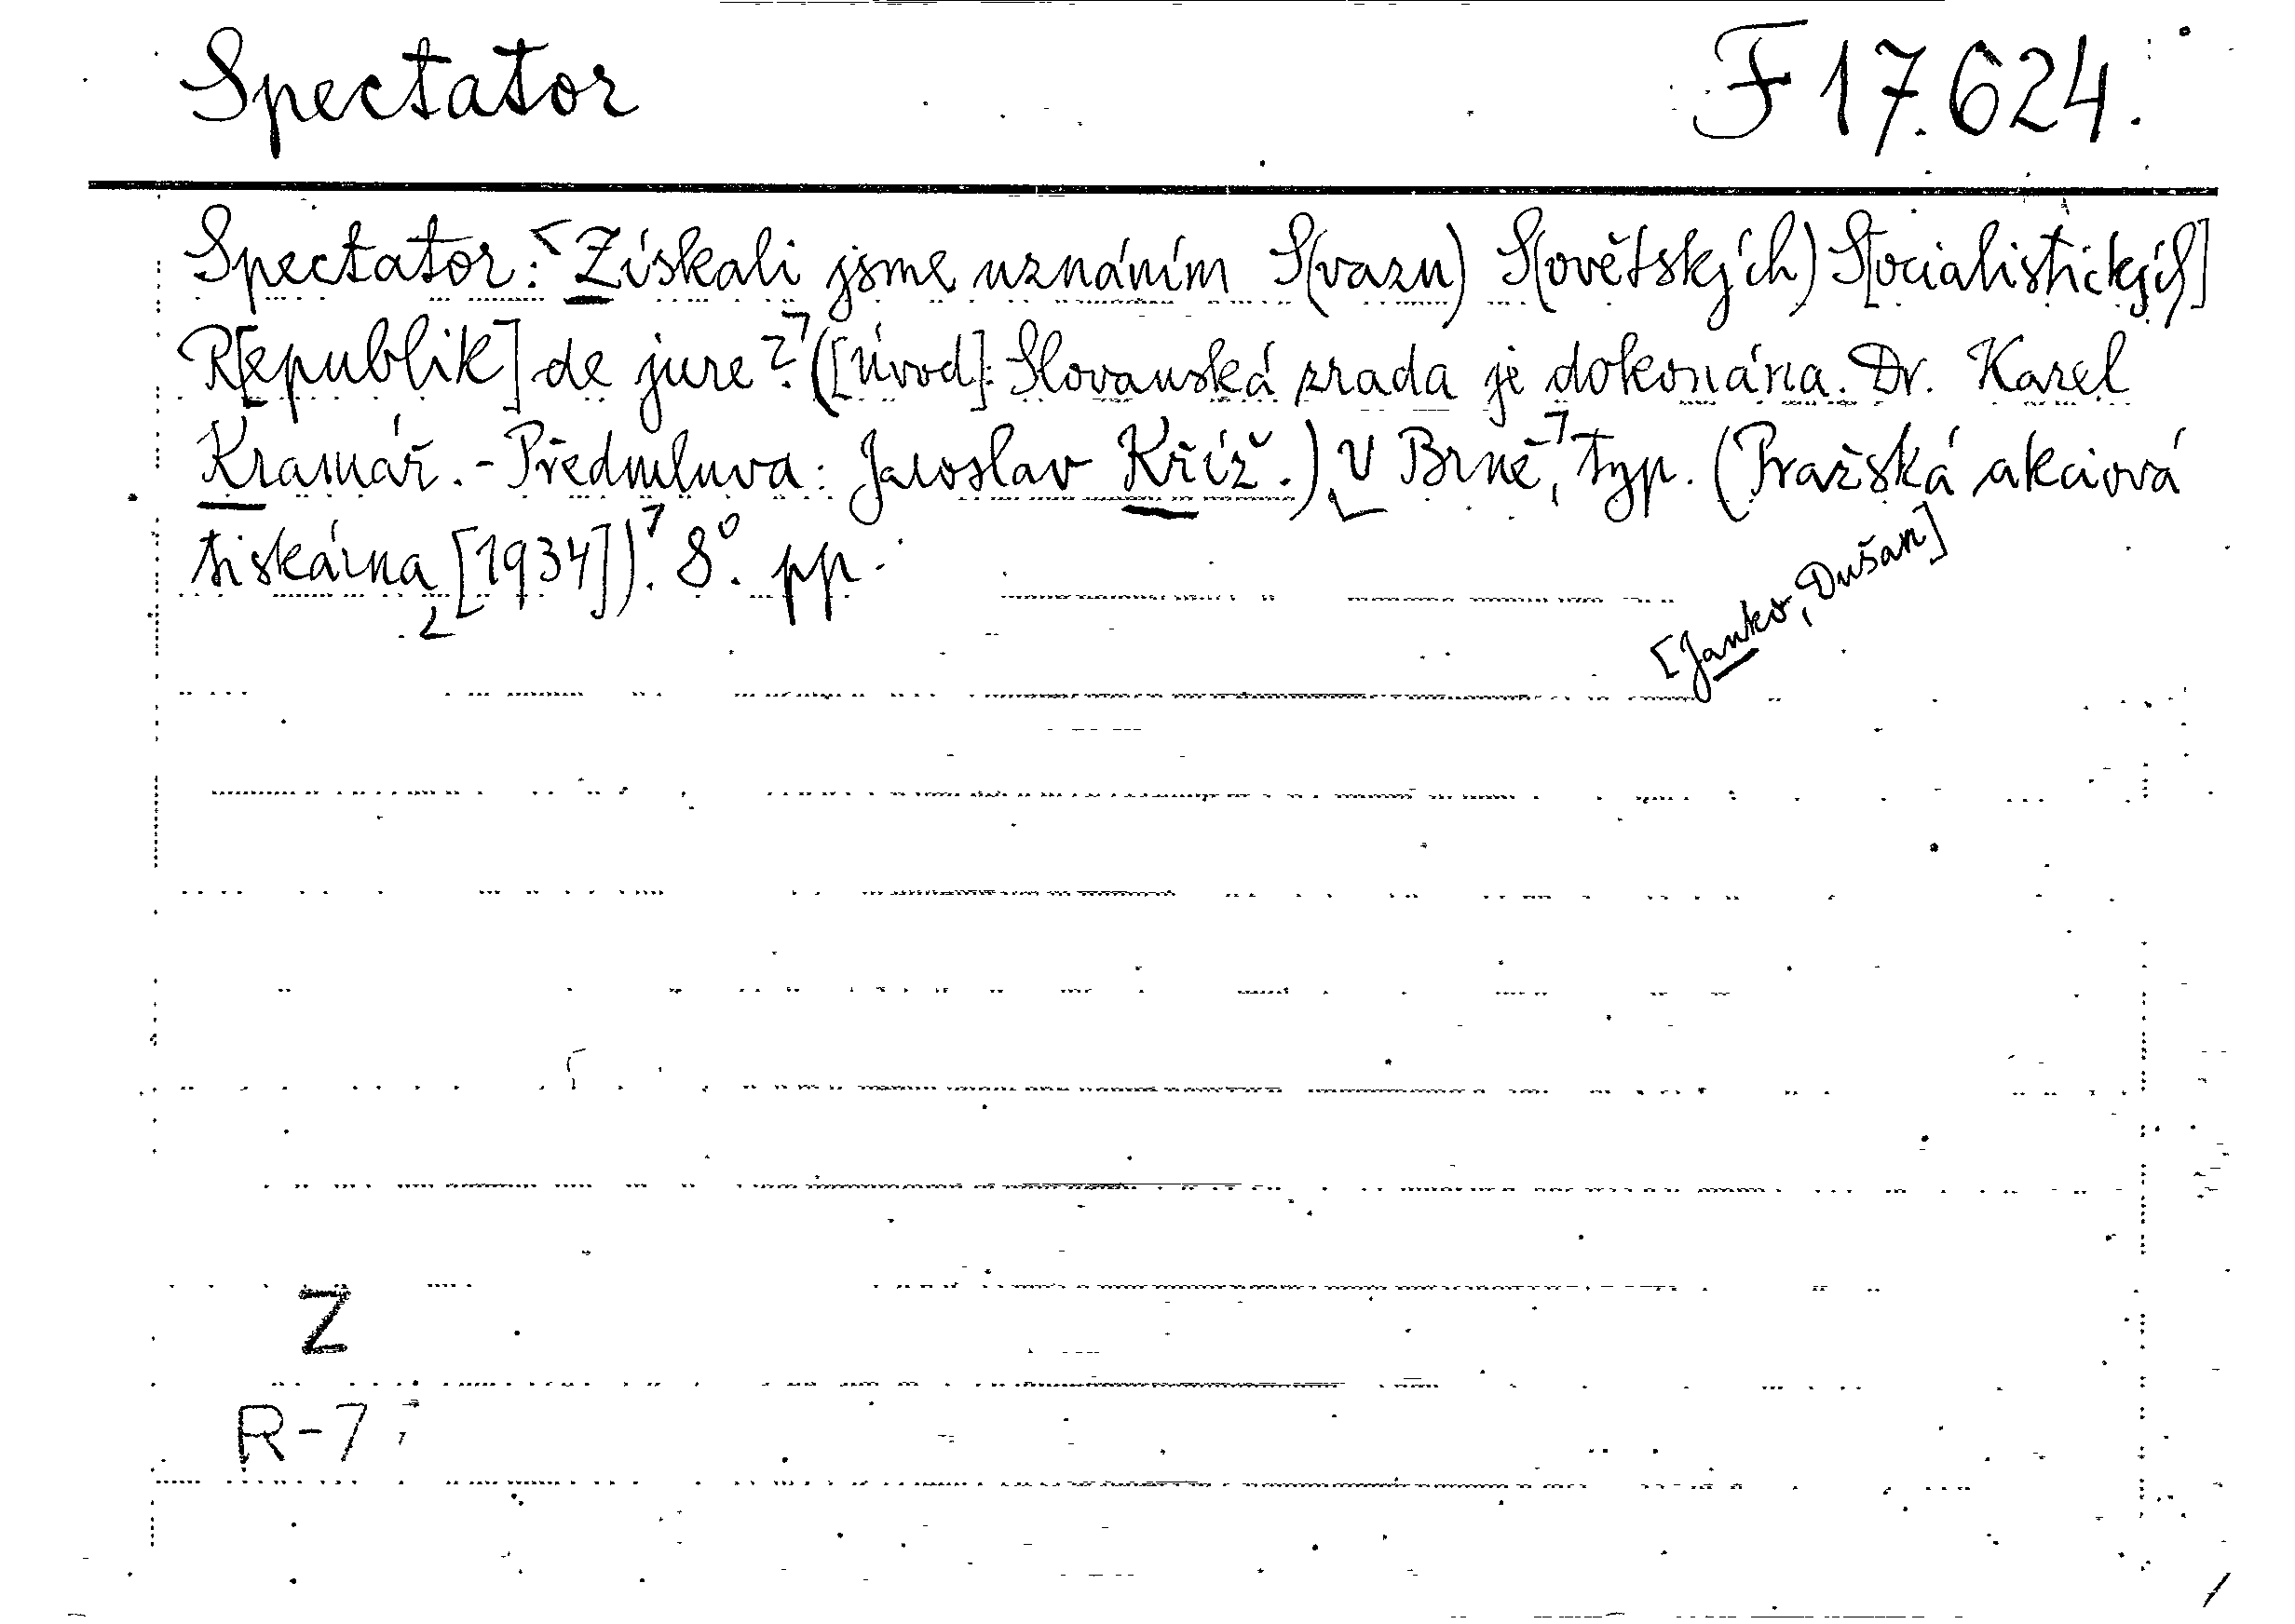 Spectator F 17.624.
Spectator: Získali jsme uznáním S(vazu) S(ovětských) S[ocialistických]
R[epublik] de jure? ([Úvod]: Slovanská zrada je dokonána. Dr. Karel
Kramář. - Předmluva: Jaroslav Kříž.) V Brně, typ. (Pražská akciová
tiskárna [1934]). 8°. pp.
[Janko, Dušan]
Z
R-7